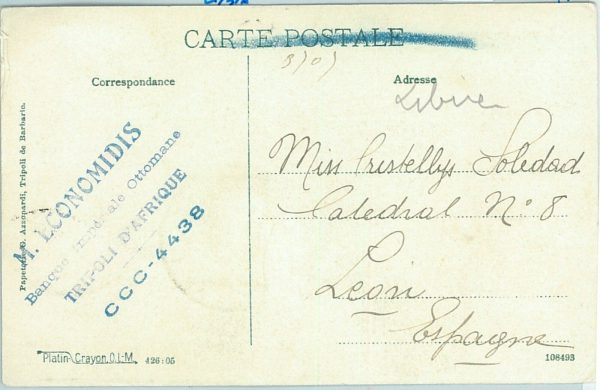 CARTE POSTALE
Correspondance
Adresse
Miss Cristellys Soledad
Catedral Nº 8
León
Espagne
ECONOMIDIS
Banque Impériale Ottomane
TRIPOLI D'AFRIQUE
CCC-4438
Azzopardi, Tripoli de Barbarie.
Platin-Crayon O.L-M.
426:05
108493